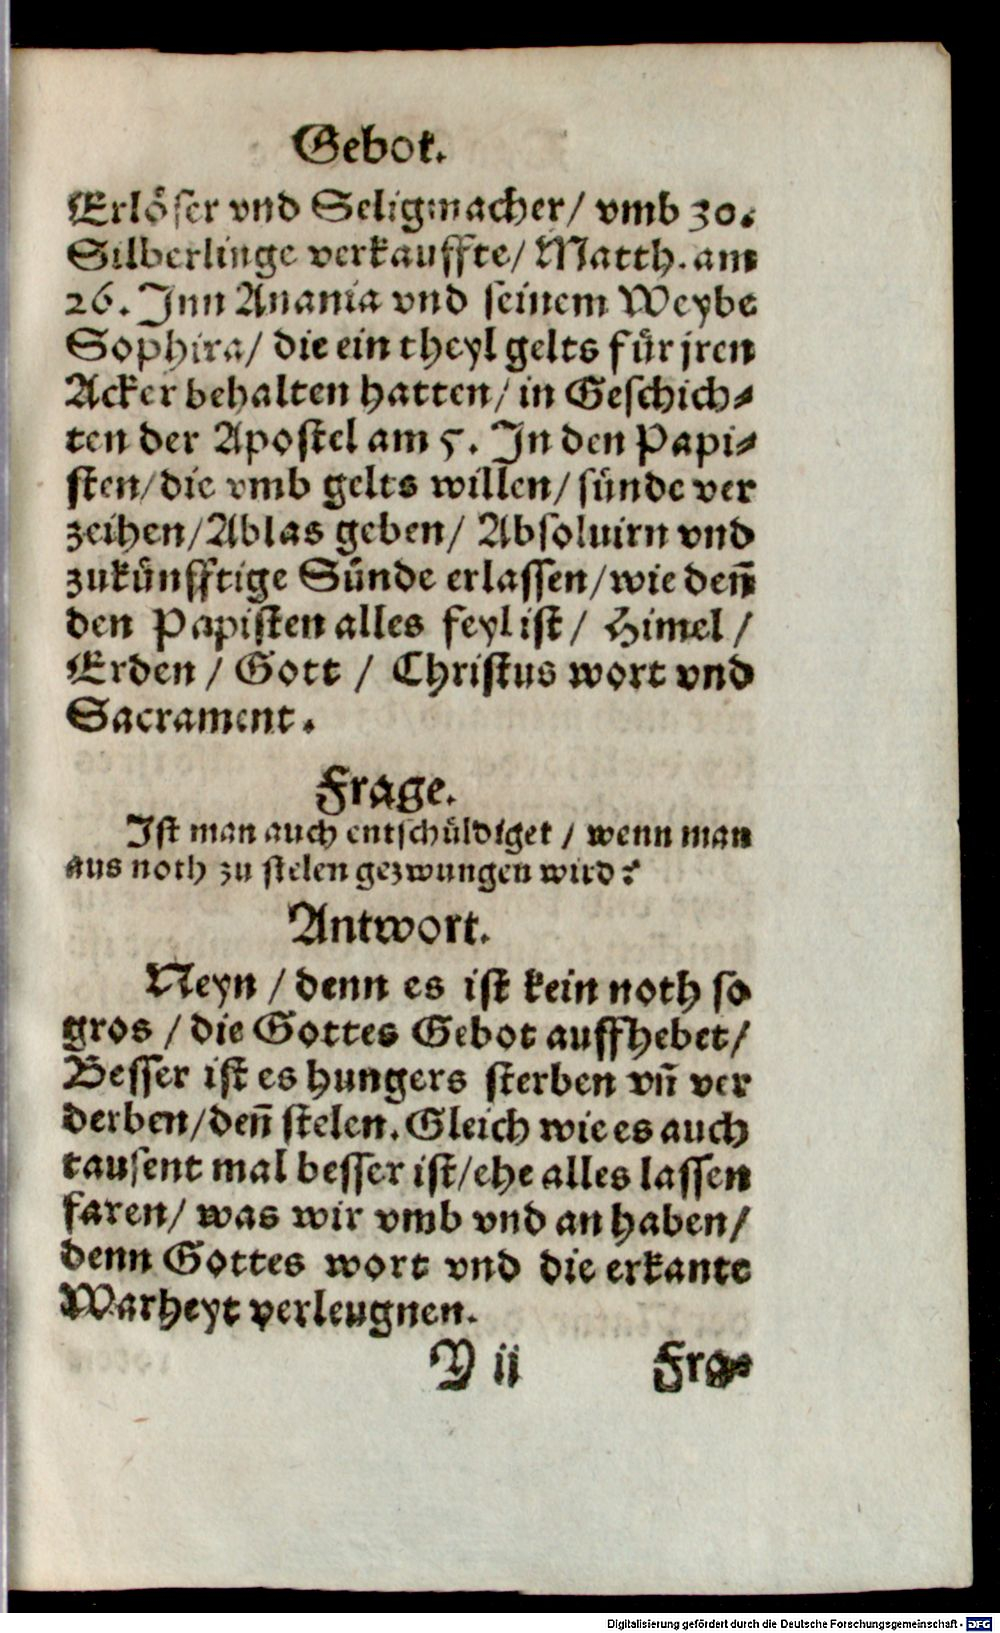 Gebot.
Erlöser vnd Seligmacher/ vmb 30.
Silberlinge verkauffte/ Matth. am
26. Jnn Anania vnd seinem Weybe
Sophira/ die ein theyl gelts für jren
Acker behalten hatten/ in Geschich⸗
ten der Apostel am 5. Jn den Papi⸗
sten/die vmb gelts willen/ sünde ver
zeihen/Ablas geben/ Absoluirn vnd
zukünfftige Sünde erlassen/wie deñ
den Papisten alles feyl ist / Himel /
Erden / Gott / Christus wort vnd
Sacrament.
Frage.
Jst man auch entschüldiget / wenn man
aus noth zu stelen gezwungen wird?
Antwort.
Neyn / denn es ist kein noth so
gros / die Gottes Gebot auffhebet/
Besser ist es hungers sterben vñ ver
derben/deñ stelen. Gleich wie es auch
tausent mal besser ist/ehe alles lassen
faren/ was wir vmb vnd an haben/
denn Gottes wort vnd die erkante
Warheyt verleugnen.
Y ii Fra⸗
Digitalisierung gefördert durch die Deutsche Forschungsgemeinschaft - DFG